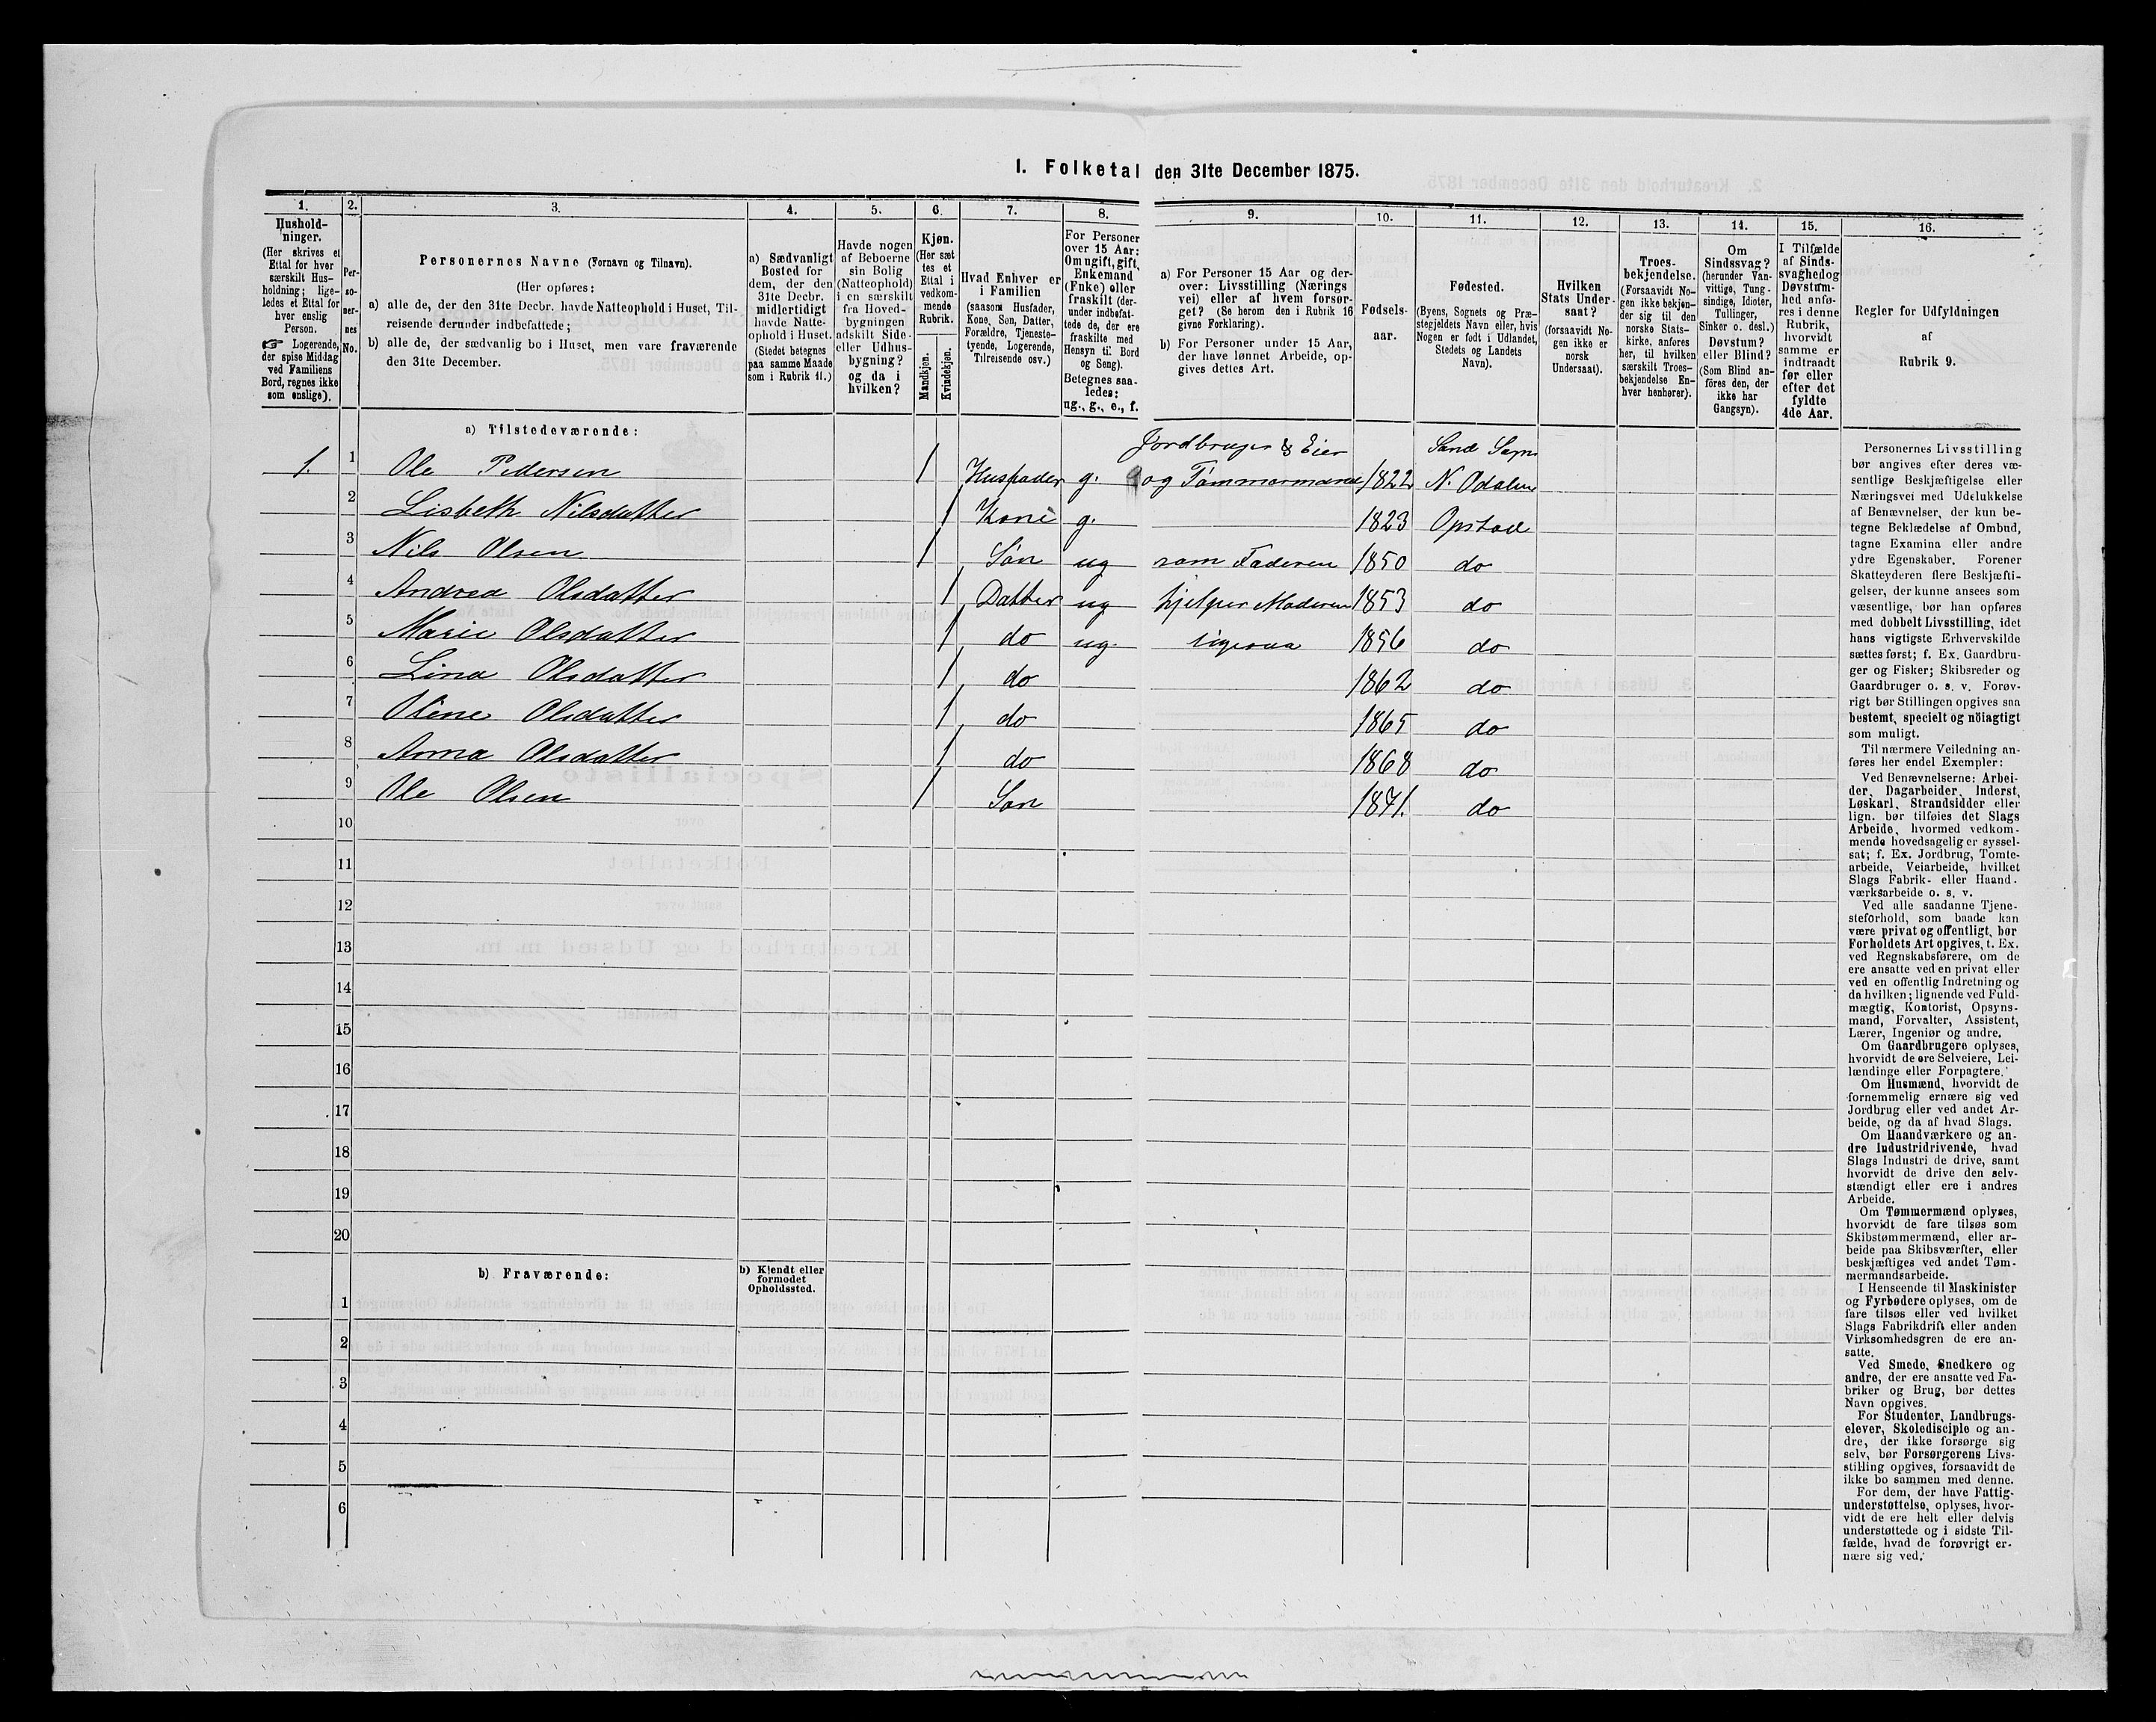 1. Folketal den 31te December 1875.
1.
Hushold-
ninger.
(Her skrives et
Ettal for hver
særskilt Hus-
holdning; lige-
ledes et Ettal for
hver enslig
Person.
☞ Logerende,
der spise Middag
ved Familiens
Bord, regnes ikke
som enslige).
2.
Per-
so-
ner-
nes
No.
3.
Personernes Navne (Fornavn og Tilnavn).
(Her opføres:
a) alle de, der den 31te Decbr. havde Natteophold i Huset, Til-
reisende derunder indbefattede;
b) alle de, der sædvanlig bo i Huset, men vare fraværende
den 31te December.
4.
a) Sædvanligt
Bosted for
dem, der den
31te Decbr.
midlertidigt
havde Natte-
ophold i Huset.
(Stedet betegnes
paa samme Maade
som i Rubrik 11.)
5.
Havde nogen
af Beboerne
sin Bolig
(Natteophold)
i en særskilt
fra Hoved-
bygningen
adskilt Side-
eller Udhus-
bygning?
og da i
hvilken?
6.
Kjøn.
(Her sæt
tes et
Ettal i
vedkom-
mende
Rubrik.
Mandkjøn.
Kvindekjøn.
7.
Hvad Enhver er
i Familien
(saasom Husfader,
Kone, Søn, Datter,
Forældre, Tjeneste-
tyende, Logerende,
Tilreisende osv.)
8.
For Personer
over 15 Aar:
Om ugift, gift,
Enkemand
(Enke) eller
fraskilt (der-
under indbefat-
tede de, der ere
fraskilte med
Hensyn til Bord
og Seng).
Betegnes saa-
ledes:
ug., g., e., f.
9.
a) For Personer 15 Aar og der-
over: Livsstilling (Nærings
vei) eller af hvem forsør-
get? (Se herom den i Rubrik 16
givne Forklaring).
b) For Personer under 15 Aar,
der have lønnet Arbeide, op-
gives dettes Art.
10.
Fødsels-
aar.
11.
Fødested.
(Byens, Sognets og Præ-
stegjeldets Navn eller, hvis
Nogen er født i Udlandet,
Stedets og Landets
Navn).
12.
Hvilken
Stats Under-
saat?
(forsaavidt No-
gen ikke er
norsk
Undersaat).
13.
Troes-
bekjendelse.
(Forsaavidt No-
gen ikke bekjen-
der sig til den
norske Stats-
kirke, anføres
her, til hvilken
særskilt Troes-
bekjendelse En-
hver henhører).
14.
Om
Sindssvag?
(herunder Van-
vittige, Tung-
sindige, Idioter,
Tullinger,
Sinker o. desl.)
Døvstum?
eller Blind?
(Som Blind an-
føres den, der
ikke har
Gangsyn).
15.
I Tilfælde
af Sinds-
svaghed og
Døvstum-
hed anfø-
res i denne
Rubrik,
hvorvidt
samme er
indtraadt
før eller
efter det
fyldte
4de Aar.
16.
Regler for Udfyldningen
af
Rubrik 9.
a) Tilstedeværende:
Jordbruger & Eier Sand Sogn
1. 1 Ole Pedersen 1 Husfader g. og Tømmermand 1822 N. Odalen
2 Lisbeth Nilsdatter 1 Kone g. 1823 Opstad
3 Nils Olsen 1 Søn ug som Faderen 1850 do
4 Andrea Olsdatter 1 Datter ug hjelper Moderen 1853 do
5 Marie Olsdatter 1 do ug. ligesaa 1856 do
6 Lina Olsdatter 1 do 1862 do
7 Oline Olsdatter 1 do 1865 do
8 Anna Olsdatter 1 do 1868 do
9 Ole Olsen 1 Søn 1871. do
10
11
12
13
14
15
16
17
18
19
20
b) Fraværende:
b) Kjendt eller
formodet
Opholdssted.
1
2
3
4
5
6
Personernes Livsstilling
bør angives efter deres væ-
sentlige Beskjæftigelse eller
Næringsvei med Udelukkelse
af Benævnelser, der kun be-
tegne Beklædelse af Ombud,
tagne Examina eller andre
ydre Egenskaber. Forener
Skatteyderen flere Beskjæfti-
gelser, der kunne ansees som
væsentlige, bør han opføres
med dobbelt Livsstilling, idet
hans vigtigste Erhvervskilde
sættes først; f. Ex. Gaardbru-
ger og Fisker; Skibsreder og
Gaardbruger o. s. v. Forøv-
rigt bør Stillingen opgives saa
bestemt, specielt og nöiagtigt
som muligt.
Til nærmere Veiledning an-
føres her endel Exempler:
Ved Benævnelserne: Arbei-
der, Dagarbeider, Inderst,
Løskarl, Strandsidder eller
lign. bør tilføies det Slags
Arbeide, hvormed vedkom-
mende hovedsagelig er syssel-
sat; f. Ex. Jordbrug, Tomte-
arbeide, Veiarbeide, hvilket
Slags Fabrik- eller Haand-
værksarbeide o. s. v.
Ved alle saadanne Tjene-
steforhold, som baade kan
være privat og offentligt, bør
Forholdets Art opgives, t. Ex.
ved Regnskabsførere, om de
ere ansatte ved en privat eller
ved en offentlig Indretning og
da hvilken; lignende ved Fuld-
mægtig, Kontorist, Opsyns-
mand, Forvalter, Assistent,
Lærer, Ingeniør og andre.
Om Gaardbrugere oplyses,
hvorvidt de ere Selveiere, Lei-
lændinge eller Forpagtere.
Om Husmænd, hvorvidt de
fornemmelig ernære sig ved
Jordbrug eller ved andet Ar-
beide, og da af hvad Slags.
Om Haandværkere og an-
dre Industridrivende, hvad
Slags Industri de drive, samt
hvorvidt de drive den selv-
stændigt eller ere i andres
Arbeide.
Om Tømmermænd oplyses,
hvorvidt de fare tilsøs som
Skibstømmermænd, eller ar-
beide paa Skibsværfter, eller
beskjæftiges ved andet Tøm-
mermandsarbeide.
I Henseende til Maskinister
og Fyrbødere oplyses, om de
fare tilsøs eller ved hvilket
Slags Fabrikdrift eller anden
Virksomhedsgren de ere an-
satte.
Ved Smede, Snedkere og
andre, der ere ansatte ved Fa-
briker og Brug, bør dettes
Navn opgives.
For Studenter, Landbrugs-
elever, Skoledisciple og an-
dre, der ikke forsørge sig
selv, bør Forsørgerens Livs-
stilling opgives, forsaavidt de
ikke bo sammen med denne.
For dem, der have Fattig-
understøttelse, oplyses, hvor-
vidt de ere helt eller delvis
understøttede og i sidste Til-
fælde, hvad de forøvrigt er-
nære sig ved.